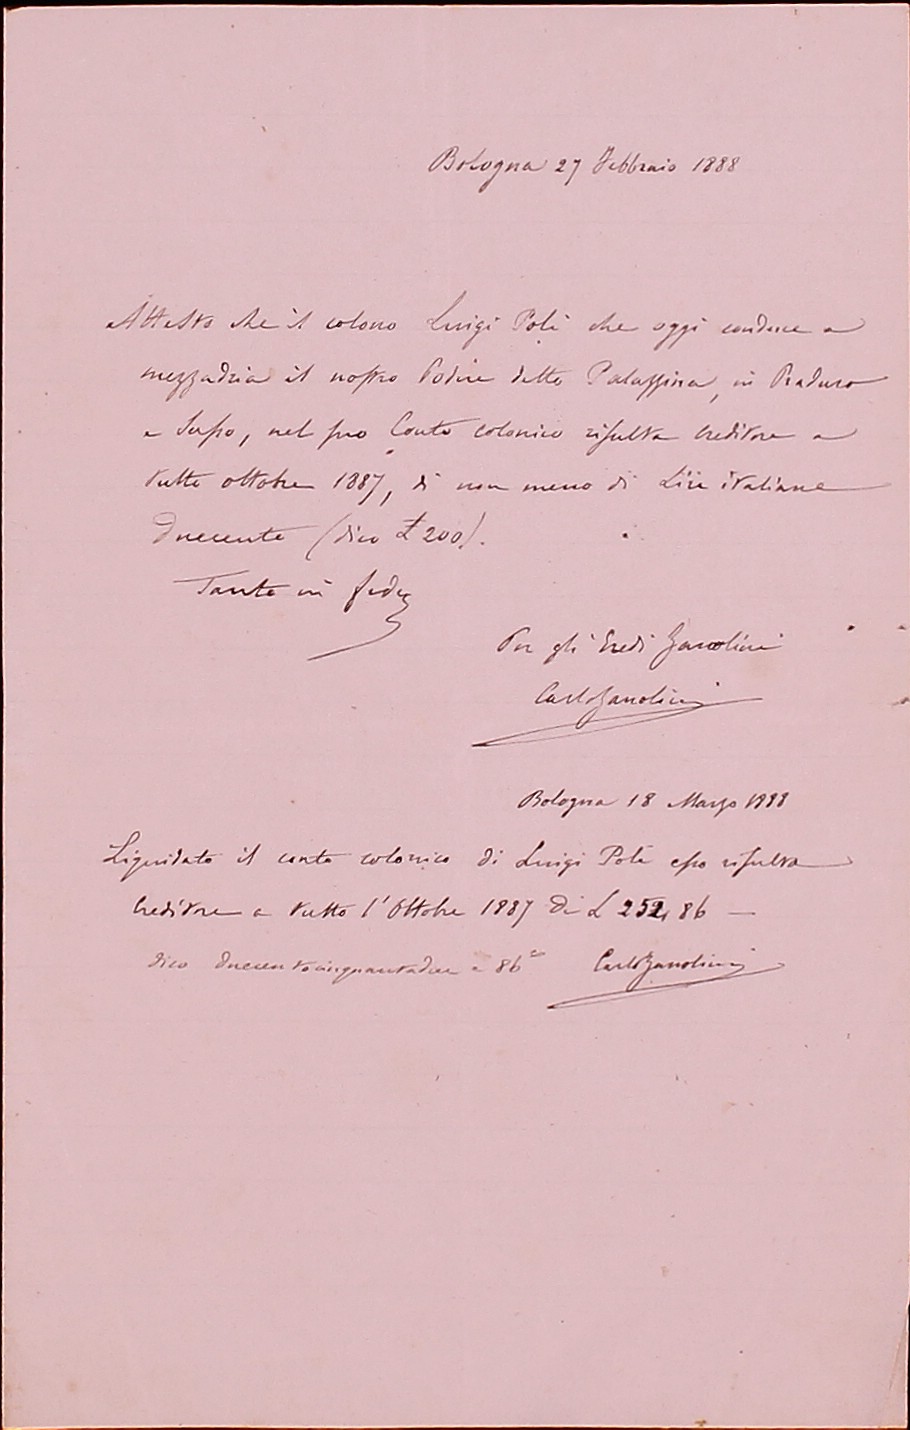 Bologna 27 Febbraio 1888
Attesto che il colono Luigi Poli che oggi conduce a
mezzadria il nostro Podere detto Palazzina, in Praduro
e Sasso, nel suo Conto colonico risulta creditore a
tutto ottobre 1887, di non meno di Lire italiane
Duecento (dico £ 200).
Tanto in fede
Per gli Eredi Zanolini
Carlo Zanolini
Bologna 18 Marzo 1888
Liquidato il conto colonico di Luigi Poli esso risulta
Creditore a tutto l'Ottobre 1887 di L 252,86 —
dico duecentocinquantadue e 86 ci Carlo Zanolini